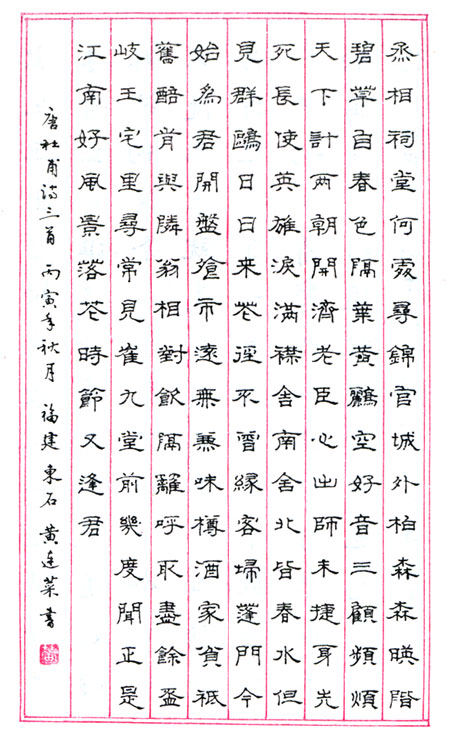 丞相祠堂何處尋錦官城外柏森森暎階
碧草自春色隔葉黃鸝空好音三顧頻煩
天下計兩朝開濟老臣心出師未捷身先
死長使英雄淚滿襟舍南舍北皆春水但
見群鷗日日來花徑不曾緣客埽蓬門今
始為君開盤飱市遠無兼味樽酒家貧祗
舊醅肯與隣翁相對飲隔籬呼取盡餘盃
岐王宅里尋常見崔九堂前幾度聞正是
江南好風景落花時節又逢君
唐杜甫詩三首 丙寅年秋月 福建東石 黃菜書